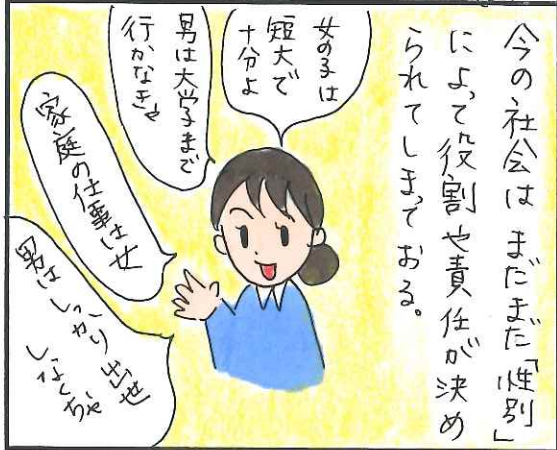 今の社会は まだまだ「性別」
によって役割や責任が決め
られてしまっておる。
女の子は
短大で
十分よ
男は大学まで
行かなきゃ
家庭の仕事は女
男はしっかり出世
しなくちゃ